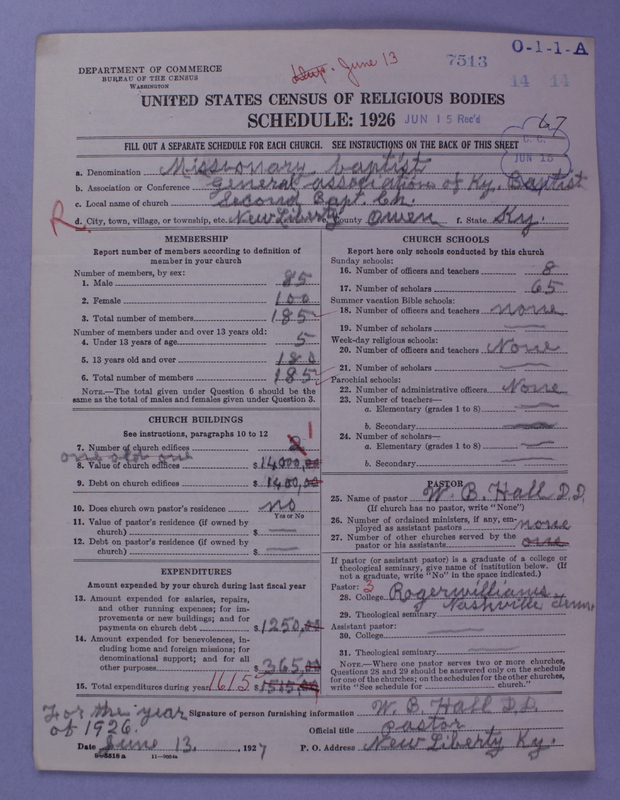 O-1-1-A
7513
June 13
14 14
DEPARTMENT OF COMMERCE
BUREAU OF THE CENSUS
WASHINGTON
UNITED STATES CENSUS OF RELIGIOUS BODIES
SCHEDULE: 1926
JUN 15 Rec'd
67
JUN 15
FILL OUT A SEPARATE SCHEDULE FOR EACH CHURCH. SEE INSTRUCTIONS ON THE BACK OF THIS SHEET
a. Denomination Missionary baptist
b. Association or Conference General association of Ky. Baptist
c. Local name of church Second Bapt. Ch.
R d. City, town, village, or township, etc. New Liberty e. County Owen f. State Ky.
MEMBERSHIP
Report number of members according to definition of
member in your church
Number of members, by sex:
1. Male 85
2. Female 100
3. Total number of members 185
Number of members under and over 13 years old:
4. Under 13 years of age 5
5. 13 years old and over 180
6. Total number of members 185
NOTE.—The total given under Question 6 should be the
same as the total of males and females given under Question 3.
CHURCH BUILDINGS
See instructions, paragraphs 10 to 12
7. Number of church edifices 2 1
one old one
8. Value of church edifices $14,000,00
9. Debt on church edifices $1400,00
10. Does church own pastor's residence no
Yes or No
11. Value of pastor's residence (if owned by
church) $
12. Debt on pastor's residence (if owned by
church) $
EXPENDITURES
Amount expended by church during last fiscal year
13. Amount expended for salaries, repairs,
and other running expenses; for im-
provements or new buildings; and for
payments on church debt $1250,00
14. Amount expended for benevolences, in-
cluding home and foreign missions; for
denominational support; and for all
other purposes $365,00
15. Total expenditures during year 1615 $1515,00
CHURCH SCHOOLS
Report here only schools conducted by this church
Sunday schools:
16. Number of officers and teachers 8
17. Number of scholars 65
Summer vacation Bible schools:
18. Number of officers and teachers none
19. Number of scholars
Week-day religious schools:
20. Number of officers and teachers None
21. Number of scholars
Parochial schools:
22. Number of administrative officers None
23. Number of teachers—
a. Elementary (grades 1 to 8)
b. Secondary
24. Number of scholars—
a. Elementary (grades 1 to 8)
b. Secondary
PASTOR
25. Name of pastor W. B. Hall D.D.
(If church has no pastor, write "None")
26. Number of ordained ministers, if any, em-
ployed as assistant pastors none
27. Number of other churches served by the
pastor or his assistants one
If pastor (or assistant pastor) is a graduate of a college or
theological seminary, give name of institution below. (If
not a graduate, write "No" in the space indicated.)
Pastor: 3
28. College Roger williams
Nashville Tenn
29. Theological seminary
Assistant pastor:
30. College
31. Theological seminary
NOTE.—Where one pastor serves two or more churches,
Questions 28 and 29 should be answered only on the schedule
for one of the churches; on the schedules for the other churches,
write "See schedule for church."
For the year
of 1926.
Signature of person furnishing information W. B. Hall D.D.
Official title pastor
Date June 13, 1927 P. O. Address New Liberty Ky.
8-5518 a 11-9004a